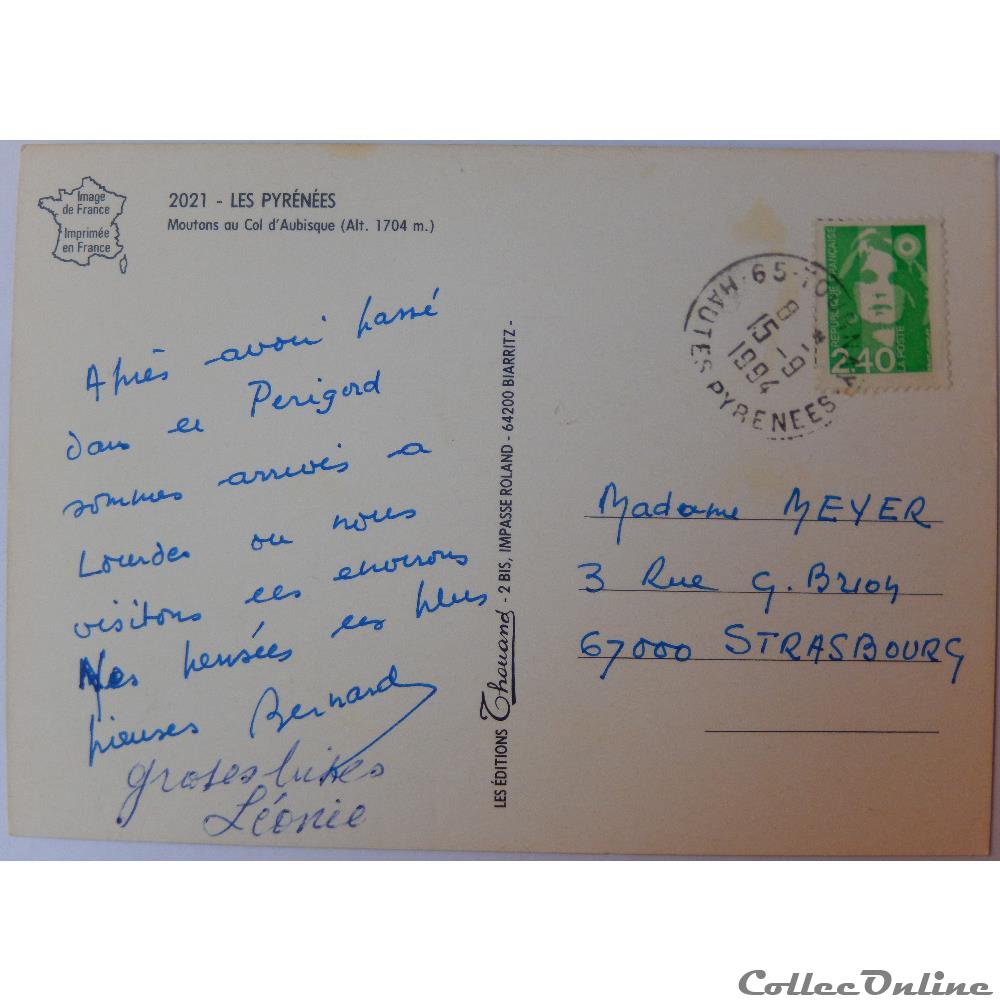 Image
de France
Imprimée
en France
2021 - LES PYRÉNÉES
Moutons au Col d'Aubisque (Alt. 1704 m.)
Après avoir passé
dans le Perigord
sommes arrivés a
Lourdes ou nous
visitons les environs
Nos pensées les plus
pieuses Bernard
groses bises
Léonie
LES ÉDITIONS Thouand - 2 BIS, IMPASSE ROLAND - 64200 BIARRITZ -
REPUBLIQUE FRANÇAISE
2,40
LA POSTE
65
HAUTES PYRENEES
8
15-9
1994
Madame MEYER
3 Rue G. Brion
67000 STRASBOURG
CollecOnline